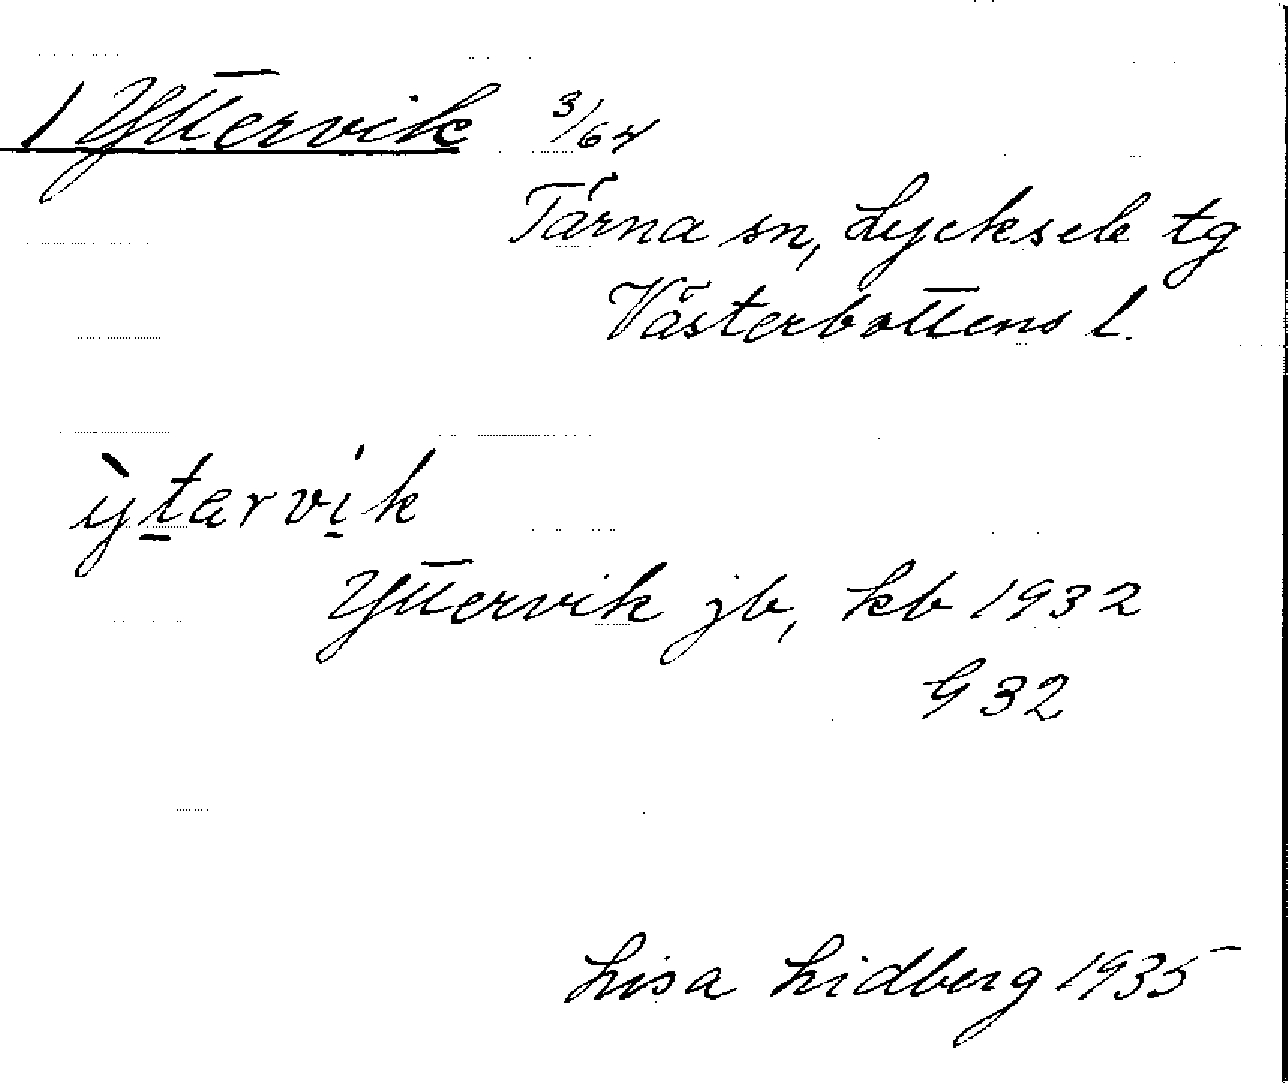 1 Yttervik 3/64
Tärna sn, Lycksele tg
Västerbottens l.
ỳtarvik
Yttervik jb, kb 1932
G 32
Lisa Lidberg 1935